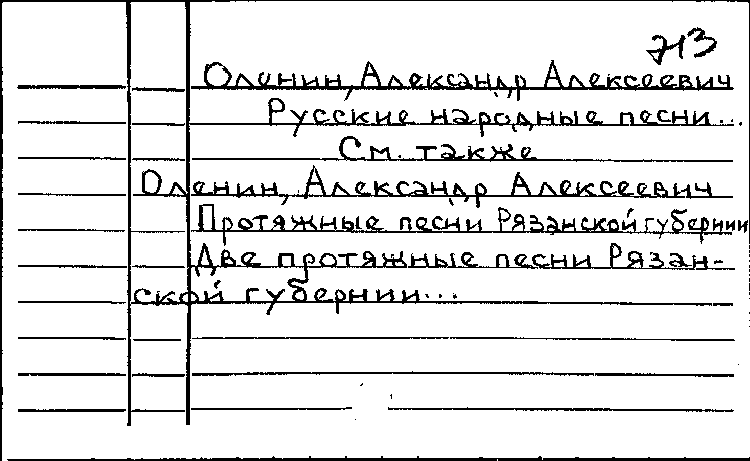 713
Оленин, Александр Алексеевич
Русские народные песни...
См. также
Оленин, Александр Алексеевич
Протяжные песни Рязанской губернии
Две протяжные песни Рязан-
ской губернии...